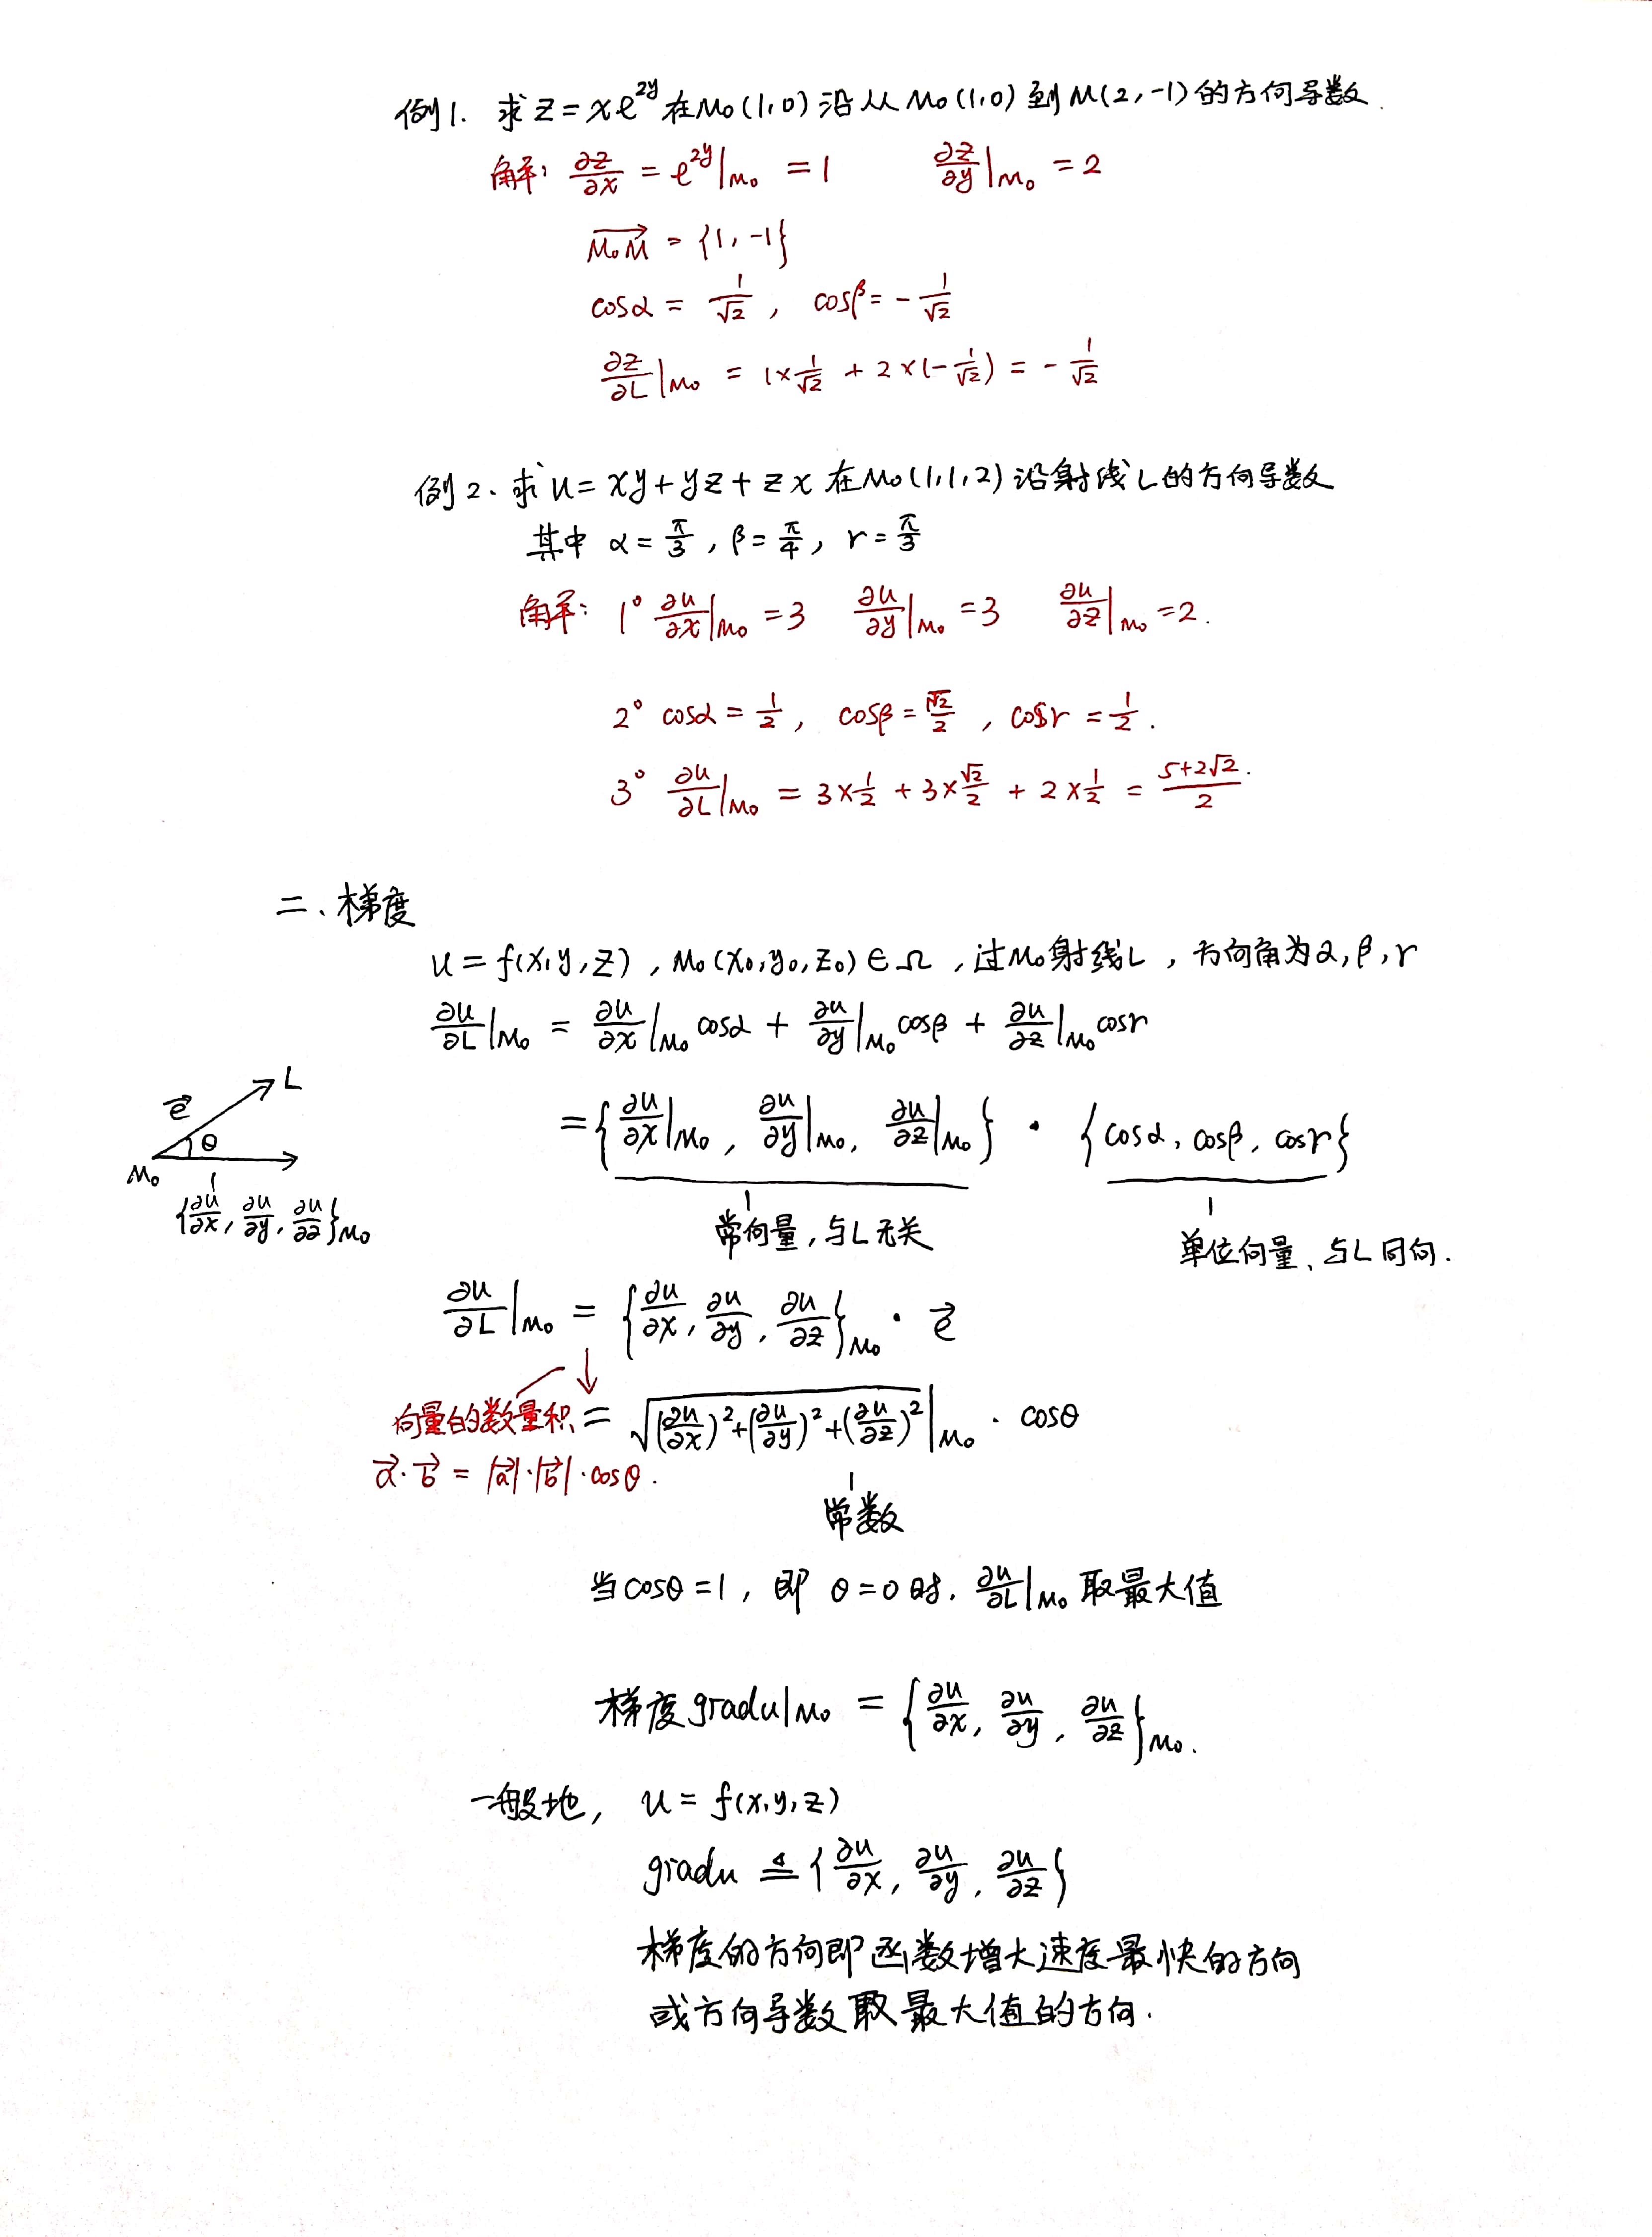 例1. 求 z = xe^{2y} 在M₀(1,0)沿从M₀(1,0)到M(2,-1)的方向导数.
解: ∂z/∂x = e^{2y}|_{M₀} = 1  ∂z/∂y|_{M₀} = 2
\overrightarrow{M₀M} = {1, -1}
cosα = 1/√2 , cosβ = - 1/√2
∂z/∂L|_{M₀} = 1×1/√2 + 2×(-1/√2) = - 1/√2
例2. 求 u = xy + yz + zx 在M₀(1,1,2)沿射线L的方向导数
其中 α = π/3 , β = π/4 , r = π/3
解: 1° ∂u/∂x|_{M₀} = 3  ∂u/∂y|_{M₀} = 3  ∂u/∂z|_{M₀} = 2.
2° cosα = 1/2 , cosβ = √2/2 , cosr = 1/2 .
3° ∂u/∂L|_{M₀} = 3×1/2 + 3×√2/2 + 2×1/2 = (5+2√2)/2.
二、梯度
u = f(x,y,z) , M₀(x₀,y₀,z₀) ∈ Ω , 过M₀射线L , 方向角为α, β, r
∂u/∂L|_{M₀} = ∂u/∂x|_{M₀} cosα + ∂u/∂y|_{M₀} cosβ + ∂u/∂z|_{M₀} cosr
= {∂u/∂x|_{M₀} , ∂u/∂y|_{M₀} , ∂u/∂z|_{M₀}} · {cosα, cosβ, cosr}
常向量, 与L无关
单位向量、与L同向.
L
\vec{e}
θ
M₀
{∂u/∂x, ∂u/∂y, ∂u/∂z}_{M₀}
∂u/∂L|_{M₀} = {∂u/∂x, ∂u/∂y, ∂u/∂z}_{M₀} · \vec{e}
向量的数量积 = √((∂u/∂x)²+(∂u/∂y)²+(∂u/∂z)²)|_{M₀} · cosθ
\vec{a}·\vec{b} = |\vec{a}|·|\vec{b}|·cosθ.
常数
当cosθ = 1 , 即 θ = 0 时, ∂u/∂L|_{M₀} 取最大值
梯度gradu|_{M₀} = {∂u/∂x, ∂u/∂y, ∂u/∂z}_{M₀}.
一般地, u = f(x,y,z)
gradu ≜ {∂u/∂x, ∂u/∂y, ∂u/∂z}
梯度的方向即函数增大速度最快的方向
或方向导数取最大值的方向.